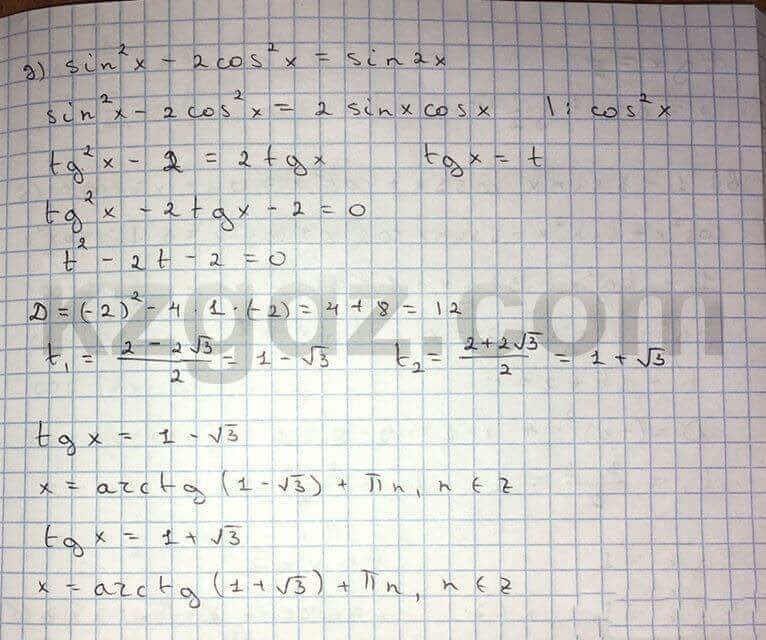 2) sin²x - 2cos²x = sin2x
sin²x - 2cos²x = 2 sinx cosx |: cos²x
tg²x - 2 = 2tgx tgx = t
tg²x - 2tgx - 2 = 0
t² - 2t - 2 = 0
D = (-2)² - 4 · 1 · (-2) = 4 + 8 = 12
t₁ = (2 - 2√3)/2 = 1 - √3 t₂ = (2 + 2√3)/2 = 1 + √3
tgx = 1 - √3
x = arctg (1 - √3) + πn, n ∈ z
tgx = 1 + √3
x = arctg (1 + √3) + πn, n ∈ z
kzgaz.com